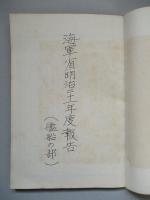 海軍省明治二十一年度報告
(艦船の部)